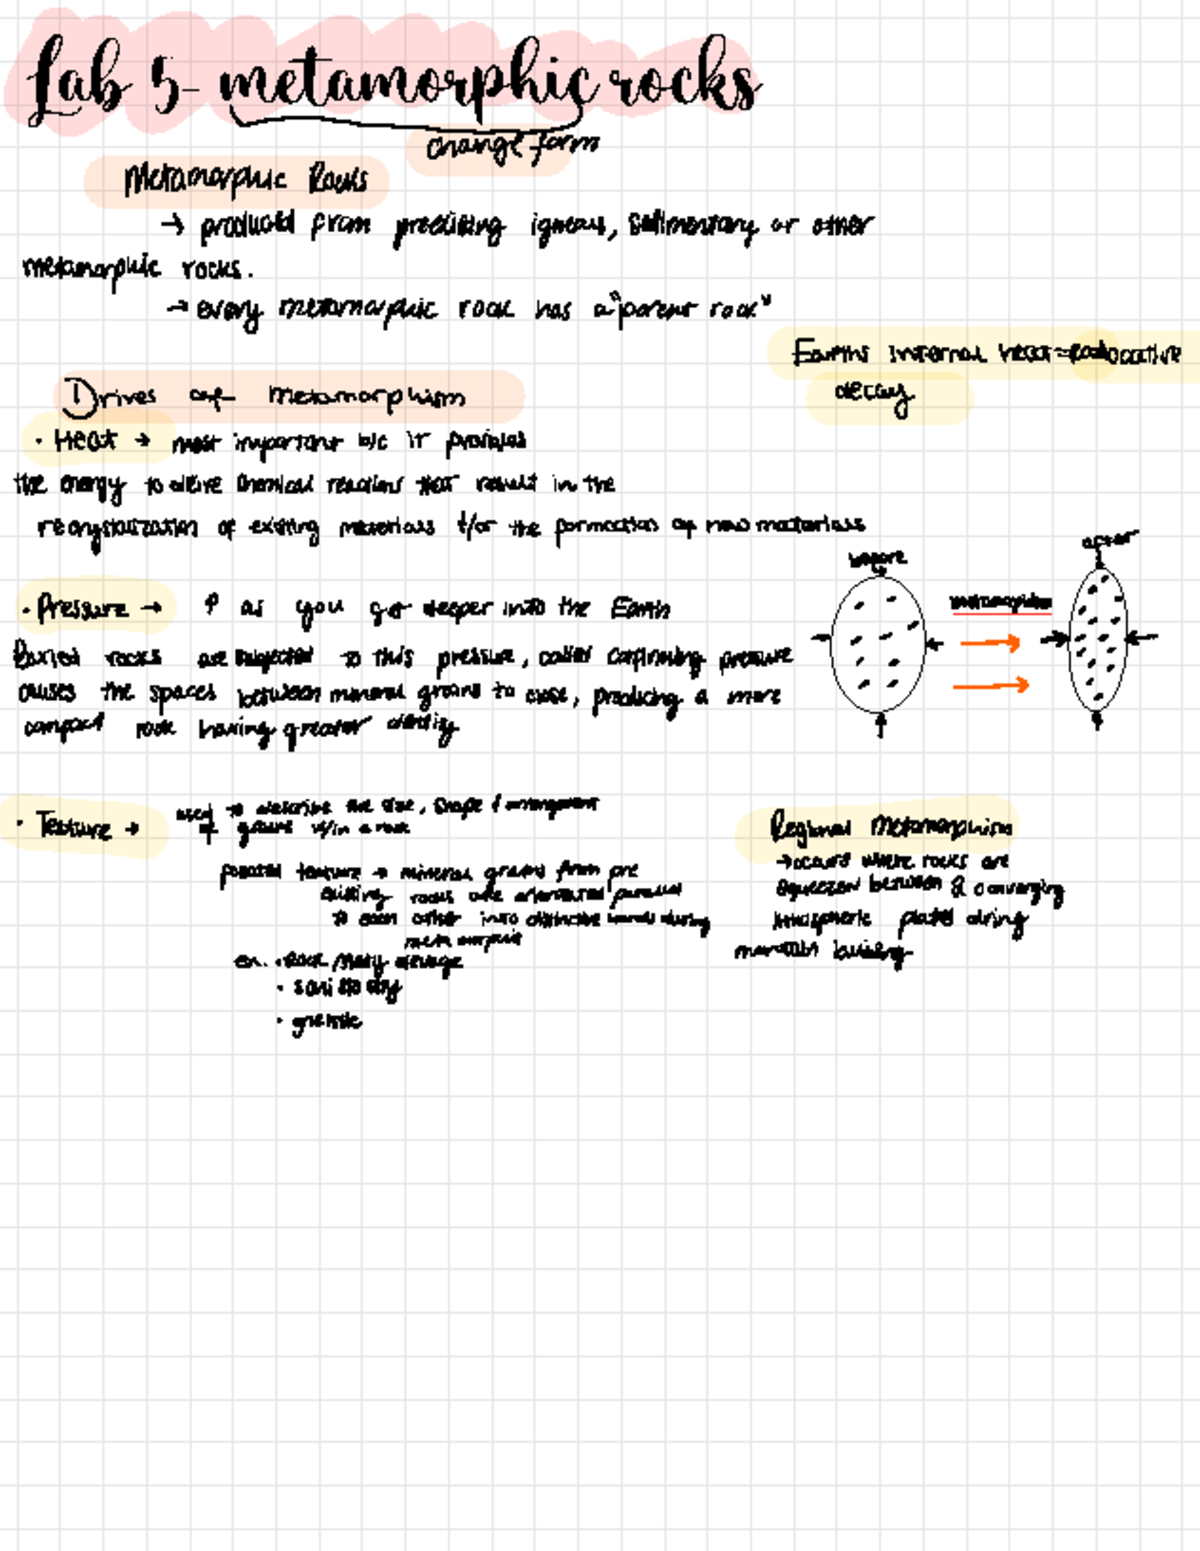 Lab 5- metamorphic rocks
change form
Metamorphic Rocks
→ produced from preexisting igneous, sedimentary or other
metamorphic rocks.
→ every metamorphic rock has a "parent rock"
Earths internal heat = radioactive
decay
Drives of metamorphism
• Heat → most important b/c it provides
the energy to drive chemical reactions that result in the
recrystallization of existing materials &/or the formation of new materials
before
after
metamorphism
• Pressure → ↑ as you get deeper into the Earth
Buried rocks are subjected to this pressure, called confining pressure
causes the spaces between mineral grains to close, producing a more
compact rock having greater density
• Texture → used to describe the size, shape & arrangement
of grains w/in a rock
foliated texture → mineral grains from pre
existing rocks are orientated parallel
to each other into distinctive bands during
ex. • Rock cleavage
•
•
Regional Metamorphism
→ occurs where rocks are
squeezed between 2 converging
lithospheric plates during
mountain building